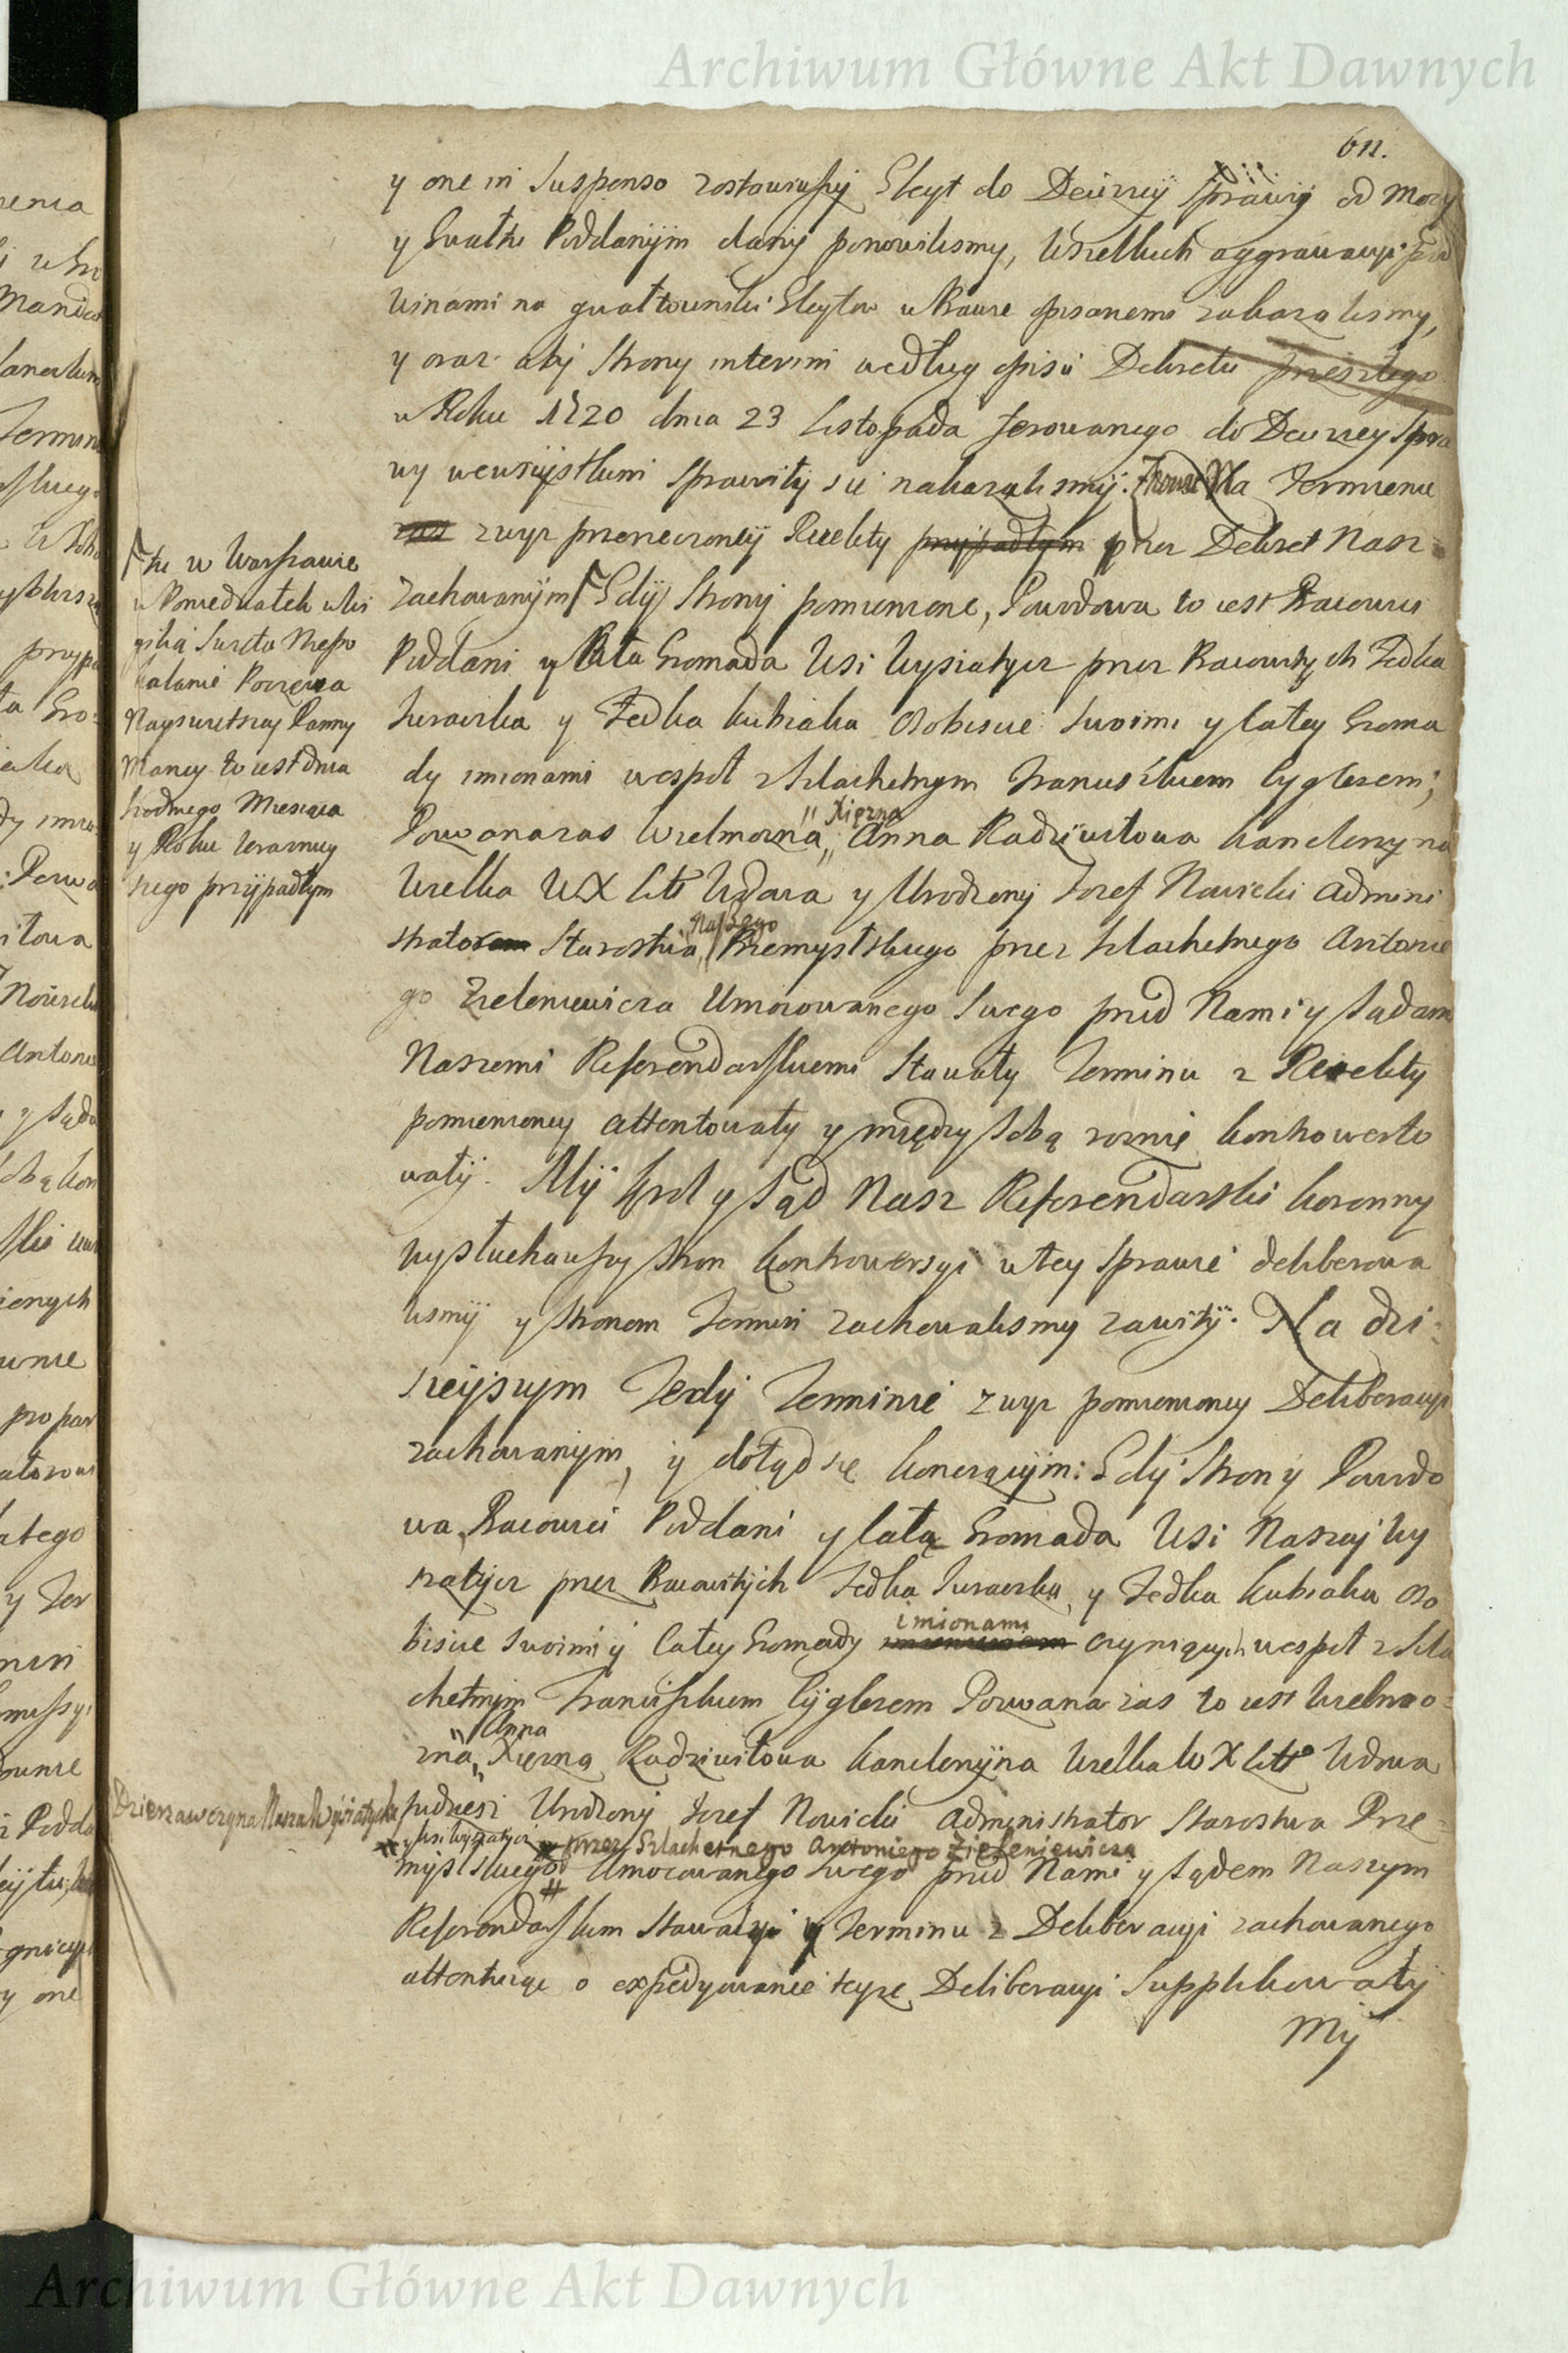 Archiwum Główne Akt Dawnych
611.
y one in Suspenso zostawiwszy Gleyt do Dawney Sprawy od Mocy
y Gwałtu Poddanym dany ponowilismy, Wszelkich aggrawacyi pod
Winami na gwałtowniki Gleytow w Prawie opisanemi zakazalismy,
y oraz aby Strony interim według opisu Dekretu przeszłego
w Roku 1720 dnia 23 Listopada ferowanego do Dawney Spra
wy we wszystkim sprawiły się nakazalismy. Na Terminie
zas zwyż przerzeczoney Reiekty przypadłym przez Dekret Nasz
zachowanym Gdy Strony pomienione, Powodowa to iest Pracowici
Poddani y Cała Gromada Wsi Wysiatycz przez Pracowitych Fedka
Juraszka y Fedka Kubiaka Osobiscie Swoim y całey Groma
dy imionami wespoł z Szlachetnym Franciszkiem Cyglerem;
Pozwana zas Wielmozna, Xięzna Anna Radziwiłowa Kanclerzyna
Wielka W X Litt Wdowa y Urodzony Jozef Nowicki Admini
strator Starostwa Naszego Przemyslskiego przez Szlachetnego Antonie
go Zieleniewicza Umocowanego Swego przed Nami y Sądam
Naszemi Referendarskiemi Stawały Terminu z Reiekty
pomienioney attentowały y między Sobą roznie kontrowerto
wały. My Krol y Sąd Nasz Referendarski Koronny
wysłuchawszy Stron Kontrowersyi w tey Sprawie deliberowa
lismy y Stronom Termin zachowalismy zawity. Na dzi
sieyszym Tedy Terminie zwyż pomienioney Deliberacyi
zachowanym, y dotąd się konczącym: Gdy Strony Powodo
wa Pracowici Poddani y Cała Gromada Wsi Naszey Wy
siatycz przez Pracowitych Fedka Juraszka, y Fedka Kubiaka Oso
biscie Swoim y Całey Gromady imionami czyniących wespoł z Szla
chetnym Franciszkiem Cyglerem Pozwana zas to iest Wielmo
zna, Anna Xięzna Radziwiłowa Kanclerzyna Wielka W X Litt Wdowa
tudziesz Urodzony Jozef Nowicki Administrator Starostwa Prze
przez Szlachetnego Antoniego Zieleniewicza
myslskiego Umocowanego Swego przed Nami y Sądem Naszym
Referendarskim Stawaiąc y Terminu z Deliberacyi zachowanego
attentuiąc o expedyowanie teyże Deliberacyi Supplikowały
My
tu w Warszawie
w Poniedziałek w Wi
gilią Swięta Niepo
kalanie Poczęcia
Nayswietszey Panny
Maryi to iest dnia
siodmego Miesiąca
y Roku teraznie
szego przypadłym
Dzierzawczyna
Archiwum Główne Akt Dawnych